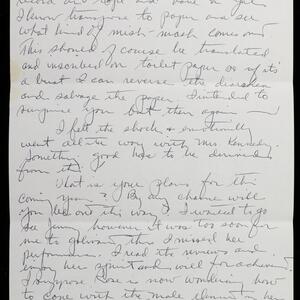 record and hope and
I know transpose to paper and see
what kind of mish-mash comes out
This should of course be translated
and inscribed on toilet paper so if it's
a bust I can reverse the direction
and salvage the paper. I intended to
surprise you but then again
I felt the shock & emotionally
went all the way with Mrs Kennedy.
Something good has to be
from it.
What is your plans for this
coming year? By any chance will
you be out this way? I wanted to go
see Jenny however it was too soon for
me to then I missed her
performance. I read the reviews and
enjoy her spirit and will for achievement
I suppose she is now wondering how
to cope with the male element in her